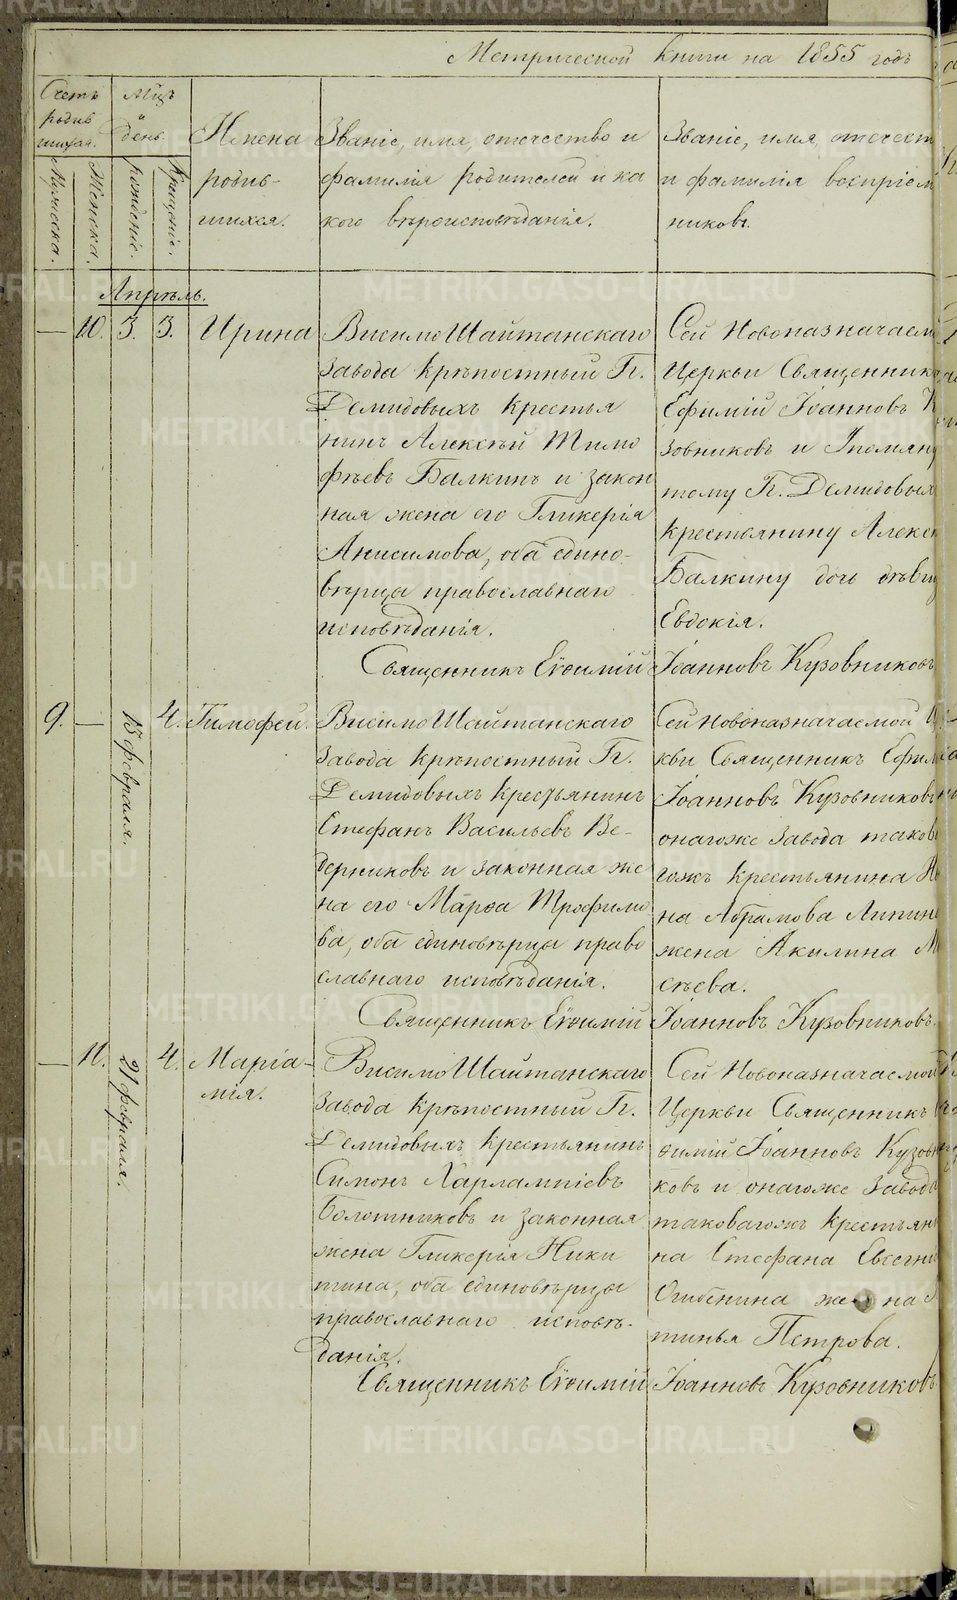 Метрической книги на 1855 годъ
Счетъ родившихся.
Мужеска.
Женска.
Мѣцъ и день.
рожденіе.
крещеніе.
Имена
родив-
шихся.
Званіе, имя, отчество и
фамилія родителей и ка
кого вѣроисповѣданія.
Званіе, имя, отечест
и фамилія воспріем
никовъ.
Апрѣль.
— 10. 3. 3. Ирина
Висимо Шайтанскаго
завода крѣпостный Гг.
Демидовыхъ крестья
нинъ Алексѣй Тимо
фѣевъ Балкинъ и закон
ная жена его Гликерія
Анисимова, оба едино-
вѣрцы православнаго
исповѣданія.
Сей Новоназначаем
Церкви Священник
Ефимій Іоанновъ К
зовниковъ и Упомян
тому Гг. Демидовых
крестьянину Алекс
Балкину дочь дѣви
Евдокія.
Священникъ Евѳимій Іоанновъ Кузовниковъ
9. — 15 февраля. 4. Тимофей.
Висимо Шайтанскаго
завода крѣпостный Гг.
Демидовыхъ крестьянинъ
Стефанъ Васильевъ Ве-
дерниковъ и законная же
на его Марѳа Трофимо
ва, оба единовѣрцы право
славнаго исповѣданія.
Сей Новоназначаемой Ц
кви Священникъ Ефим
Іоанновъ Кузовниковъ
онагоже завода таков
гожъ крестьянина
на Абрамова Липин
жена Акилина М
сѣева.
Священникъ Евѳимій Іоанновъ Кузовниковъ.
— 11. 21 февраля. 4. Маріа-
мія.
Висимо Шайтанскаго
завода крѣпостный Гг.
Демидовыхъ крестьянинъ
Симонъ Харлампіевъ
Болотниковъ и законная
жена Гликерія Ники
тина, оба единовѣрцы
православнаго исповѣ-
данія.
Сей Новоназначаемой
Церкви Священникъ
ѳимій Іоанновъ Кузовн
ковъ и онагоже завода
таковагожъ крестьян
на Стефана Евсегні
Огибенина жена
тинья Петрова.
Священникъ Евѳимій Іоанновъ Кузовниковъ
METRIKI.GASO-URAL.RU